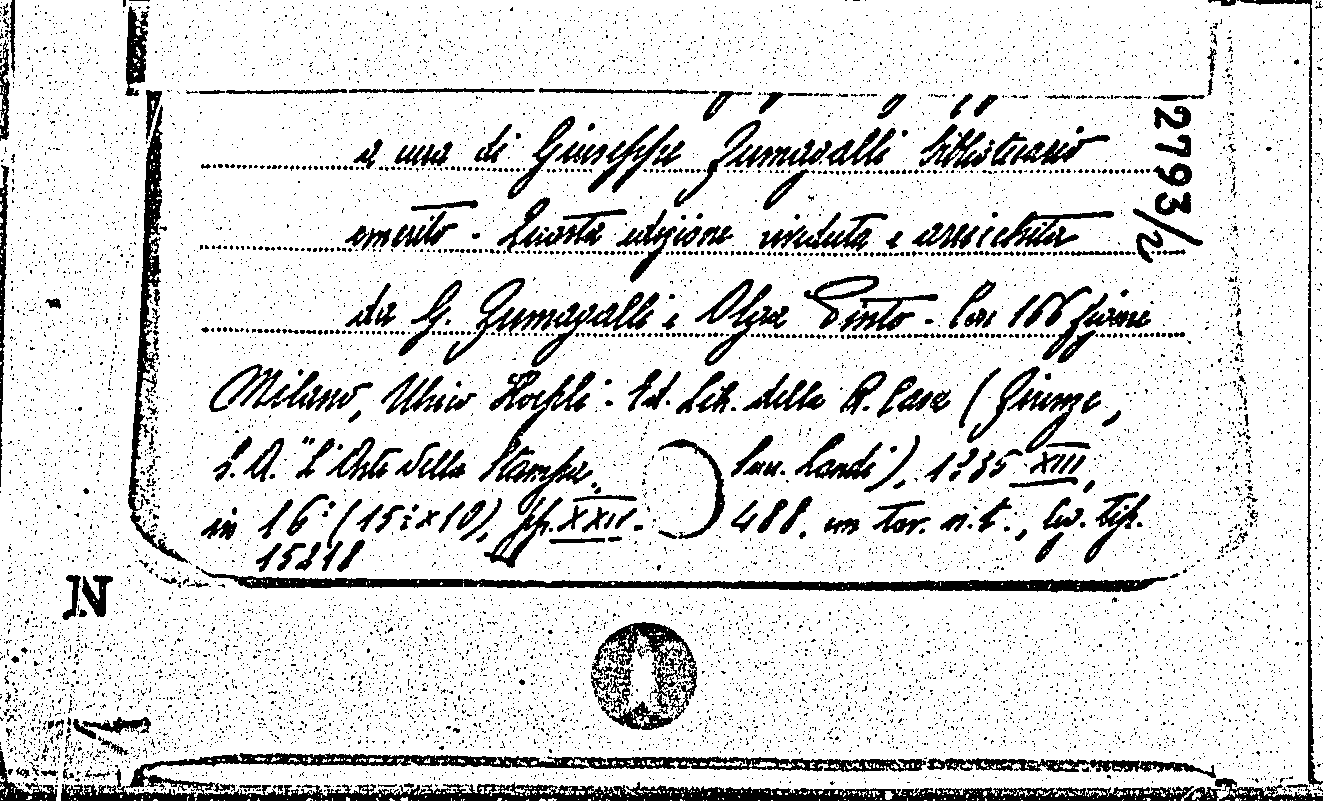 a cura di Giuseppe Fumagalli bibliotecario
emerito - Quarta edizione riveduta e arricchita
da G. Fumagalli e Olga Pinto - Con 166 figure
Milano, Ulrico Hoepli - Ed. Lih. della R. Casa (Firenze,
S. A. "L'Arte della Stampa" Succ. Landi), 1935 XIII,
in 16° (15 x 10), pp. XXIV - 488, un tav. n. t., Leg. tip.
15218
2793/2
N